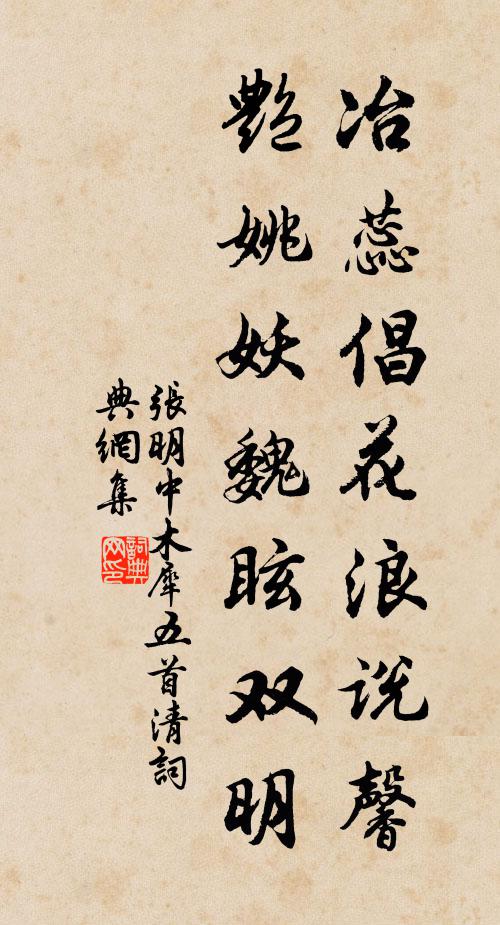 冶蕊倡花浪说馨
艳姚妖魏眩双明
張明中木犀五首清詞
典網集
詞典网印